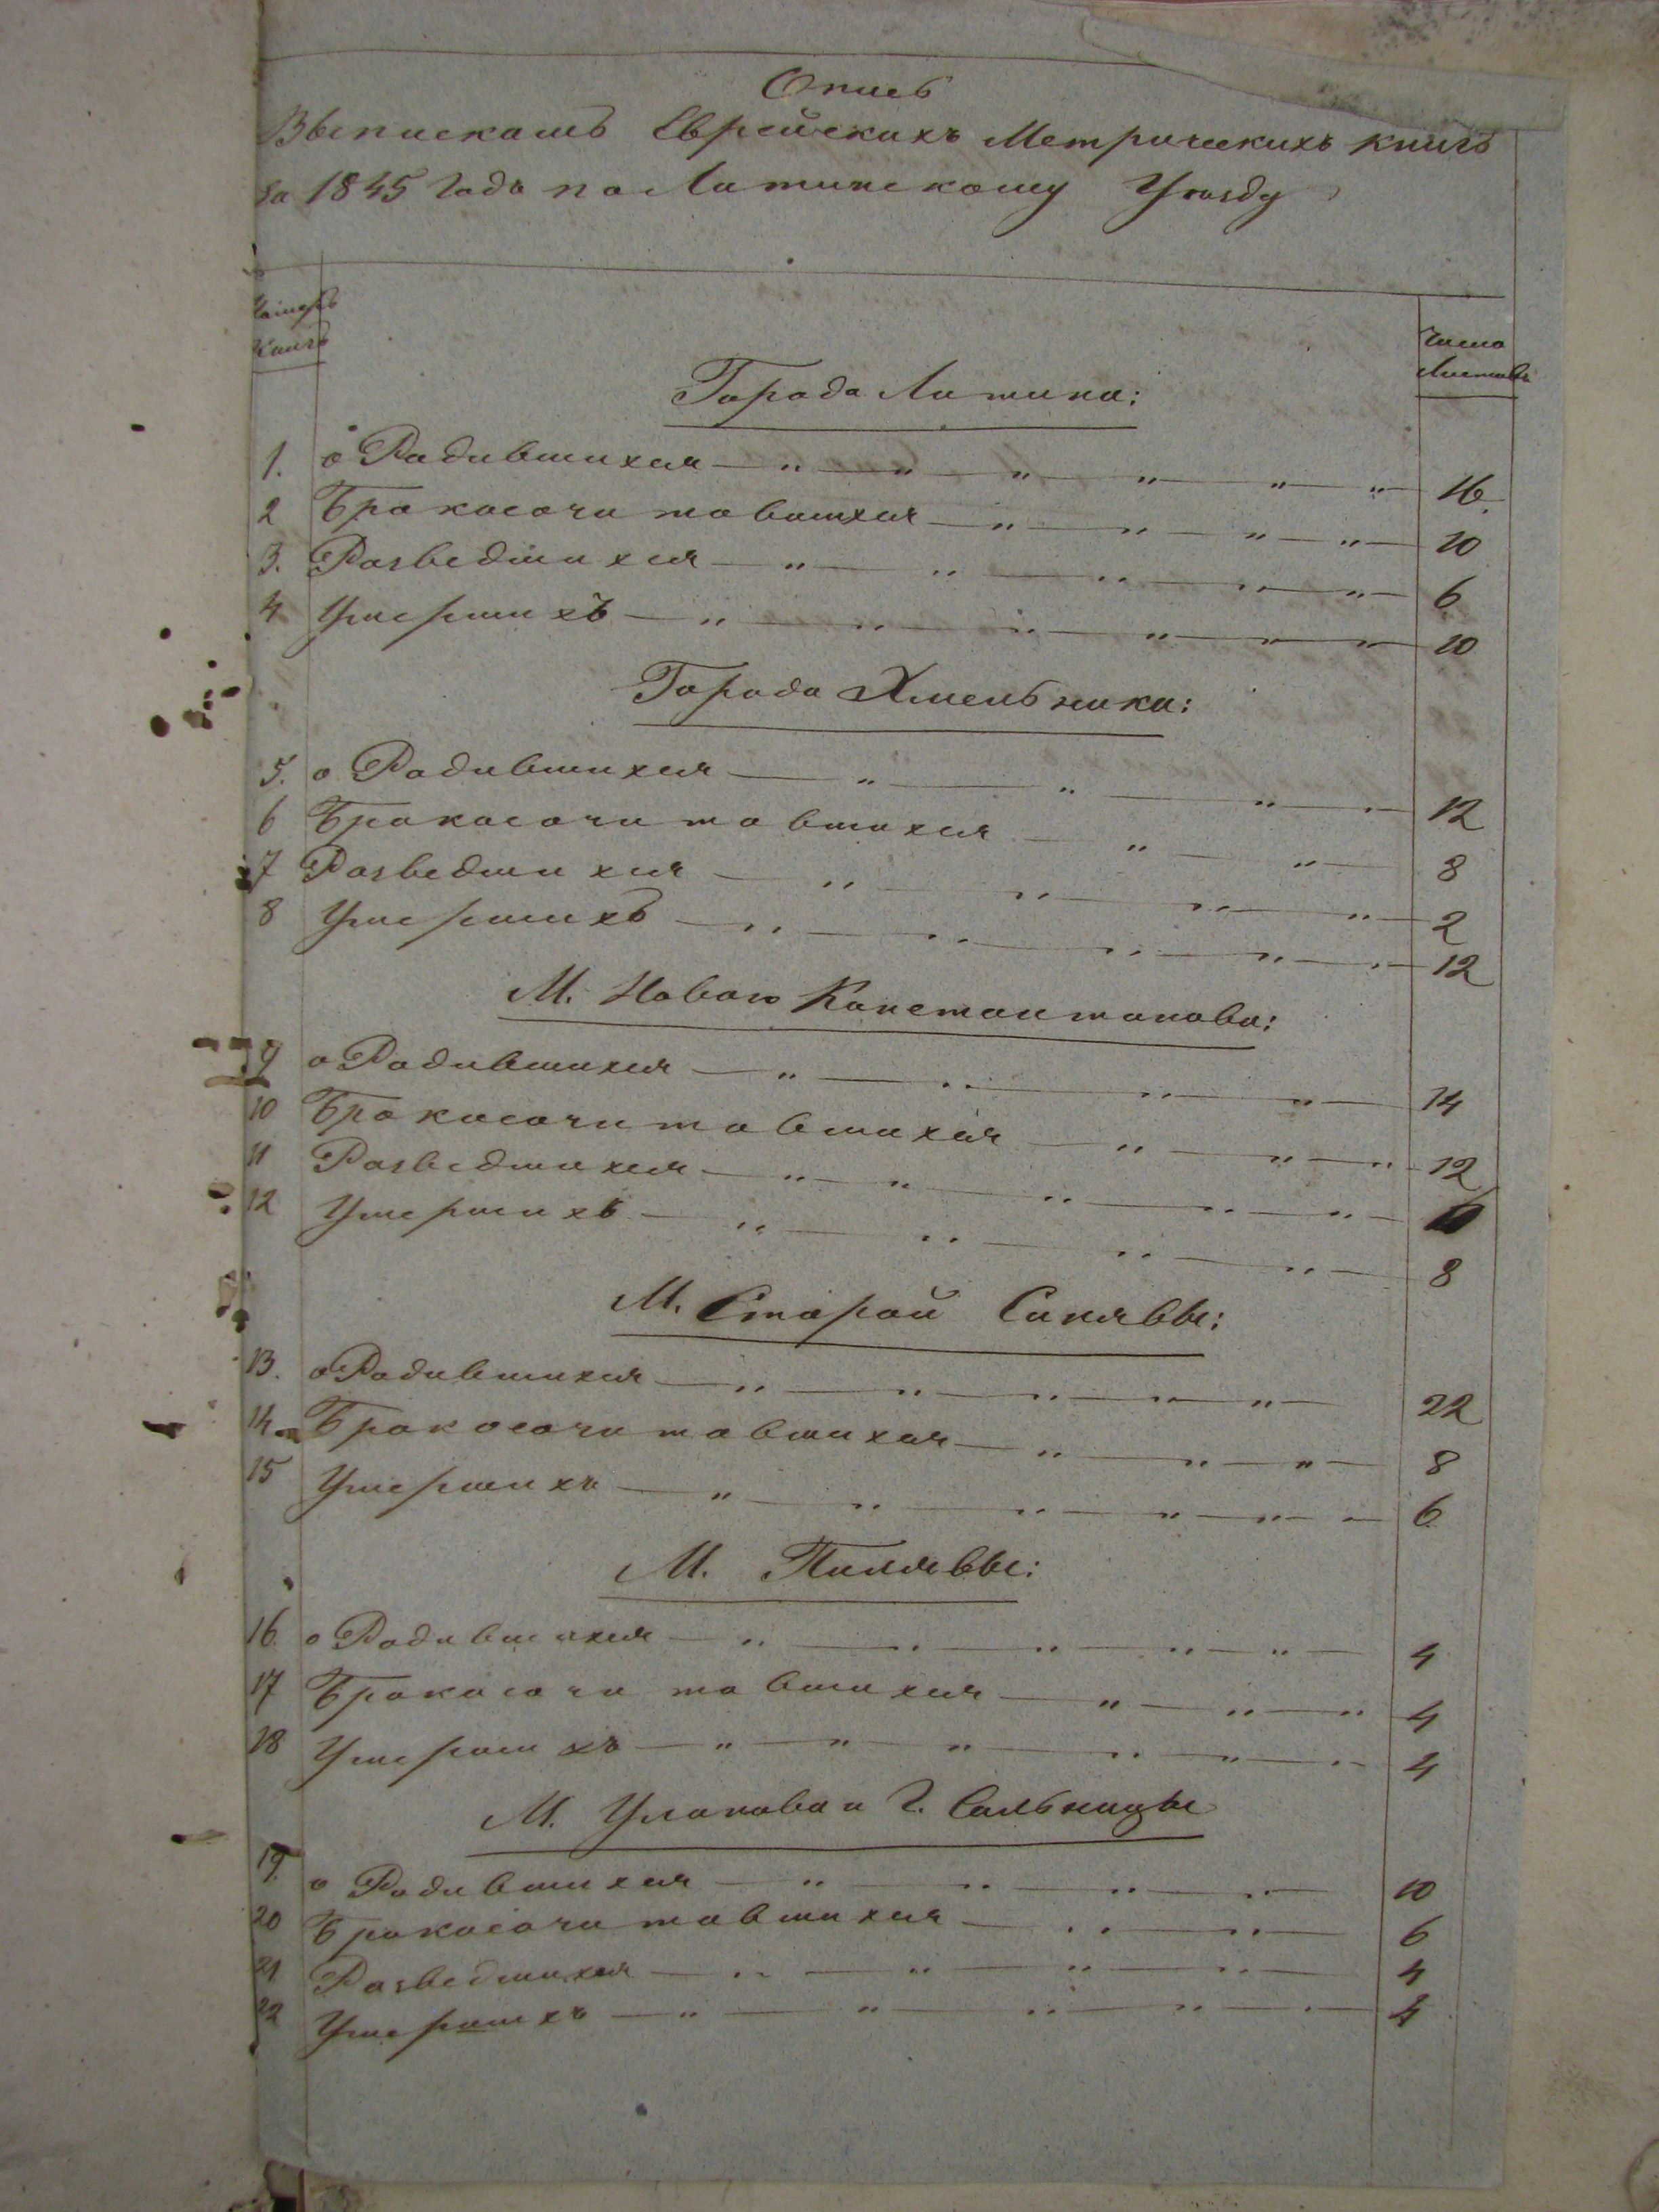 Опись
Выпискамъ Еврейскихъ Метрическихъ книгъ
за 1845 Годъ по Литинскому Уѣзду
Номеръ
Книгъ
Число
Листовъ
Города Литина:
1. о Родившихся — " — " — " — " — " — " — 16.
2 Бракосочитавшихся — " — " — " — " — 10
3. Разведшихся — " — " — " — " — " — 6
4 Умершихъ — " — " — " — " — " — " — 10
Города Хмельника:
5. о Родившихся — " — " — " — " — 12
6 Бракосочитавшихся — " — " — 8
7 Разведшихся — " — " — " — " — 2
8 Умершихъ — " — " — " — " — " — 12
М. Новаго Константинова:
9 о Родившихся — " — " — " — " — 14
10 Бракосочитавшихся — " — " — " — 12
11 Разведшихся — " — " — " — " — " —
12 Умершихъ — " — " — " — " — 8
М. Старой Синявы:
13. о Родившихся — " — " — " — " — " — 22
14 Бракосочитавшихся — " — " — " — 8
15 Умершихъ — " — " — " — " — " — 6
М. Пилявы:
16. о Родившихся — " — " — " — " — " — 4
17 Бракосочитавшихся — " — " — " 4
18 Умершихъ — " — " — " — " — " — " — 4
М. Уланова и г. Сальницы
19. о Родившихся — " — " — " — " — 10
20 Бракосочитавшихся — " — " — 6
21 Разведшихся — " — " — " — " — 4
22 Умершихъ — " — " — " — " — " — 4